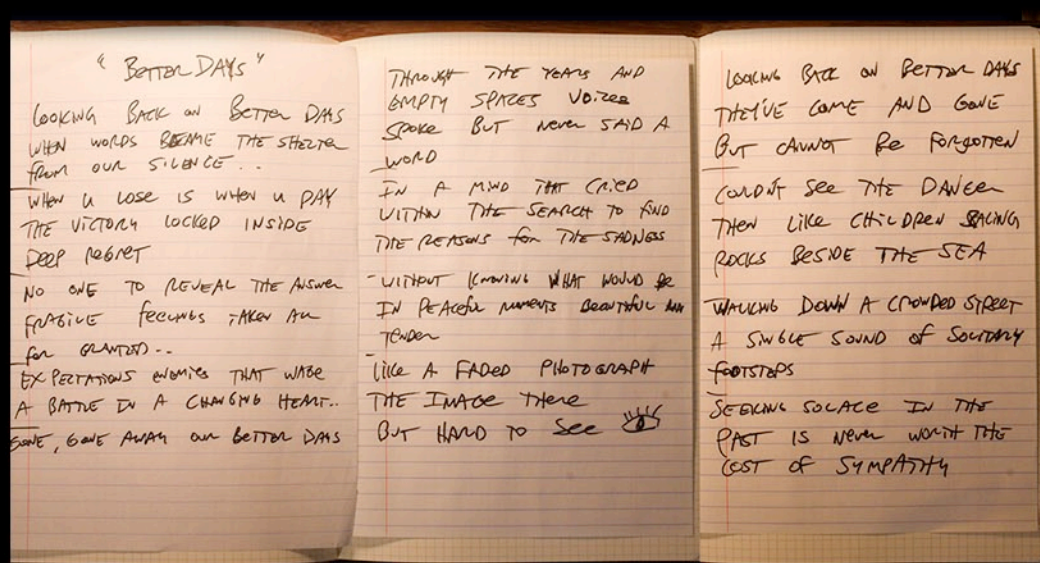 "BETTER DAYS"
LOOKING BACK ON BETTER DAYS
WHEN WORDS BECAME THE SHELTER
FROM OUR SILENCE...
WHEN U LOSE IS WHEN U PAY
THE VICTORY LOCKED INSIDE
DEEP REGRET
NO ONE TO REVEAL THE ANSWER
FRAGILE FEELINGS TAKEN ALL
FOR GRANTED..
EXPECTATIONS ENEMIES THAT WAGE
A BATTLE IN A CHANGING HEART..
GONE, GONE AWAY OUR BETTER DAYS
THROUGH THE YEARS AND
EMPTY SPACES VOICES
SPOKE BUT NEVER SAID A
WORD
IN A MIND THAT CRIED
WITHIN THE SEARCH TO FIND
THE REASONS FOR THE SADNESS
WITHOUT KNOWING WHAT WOULD BE
IN PEACEFUL MOMENTS BEAUTIFUL AND
TENDER
LIKE A FADED PHOTOGRAPH
THE IMAGE THERE
BUT HARD TO SEE
LOOKING BACK ON BETTER DAYS
THEY'VE COME AND GONE
BUT CANNOT BE FORGOTTEN
COULDN'T SEE THE DANGER
THEN LIKE CHILDREN
ROCKS BESIDE THE SEA
WALKING DOWN A CROWDED STREET
A SINGLE SOUND OF SOLITARY
FOOTSTEPS
SEEKING SOLACE IN THE
PAST IS NEVER WORTH THE
COST OF SYMPATHY